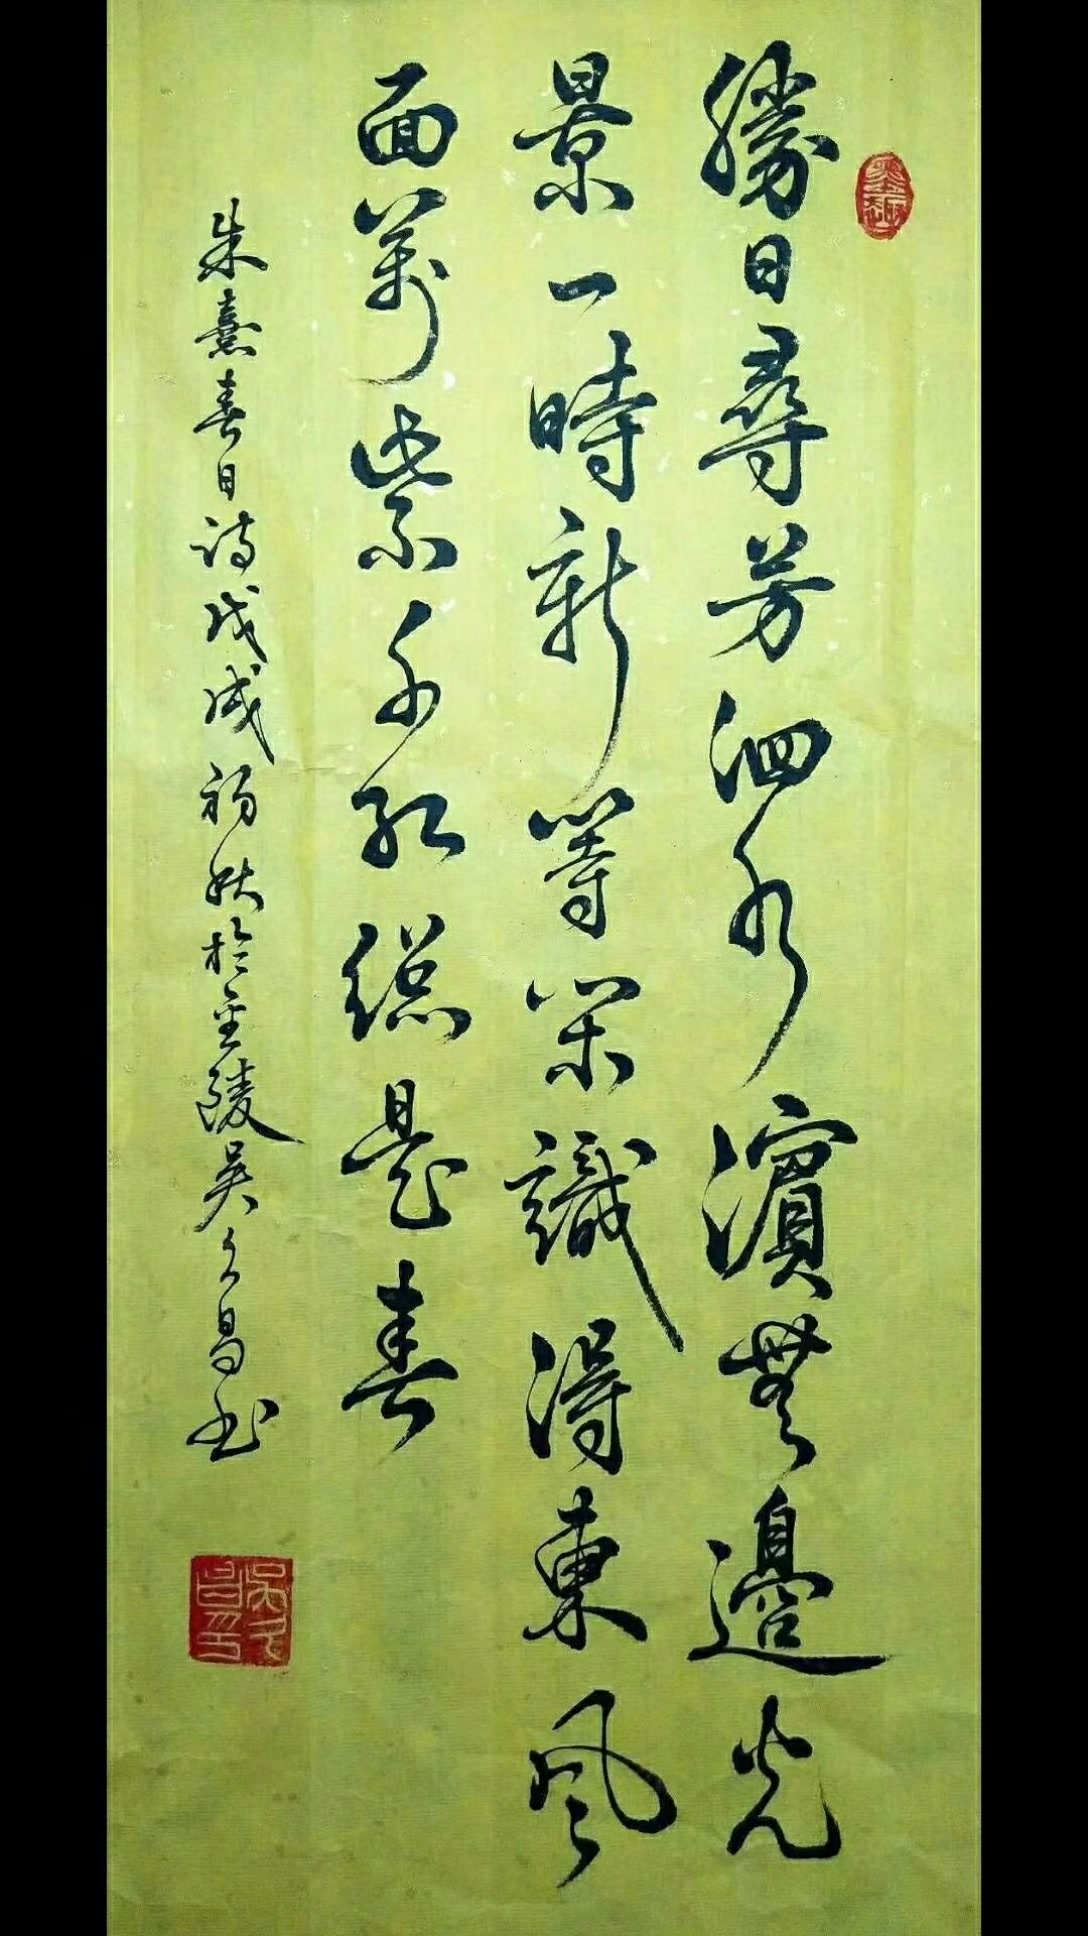 勝日尋芳泗水濱無邊光
景一時新等閑識得東風
面萬紫千紅總是春
朱熹春日诗戊戌初秋於金陵吴久昌书
吴久昌印